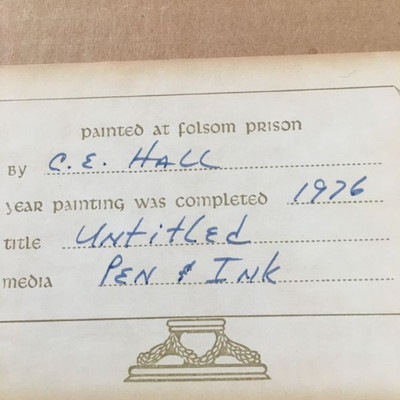 painted at folsom prison
By C. E. HALL
year painting was completed 1976
title Untitled
media Pen & Ink